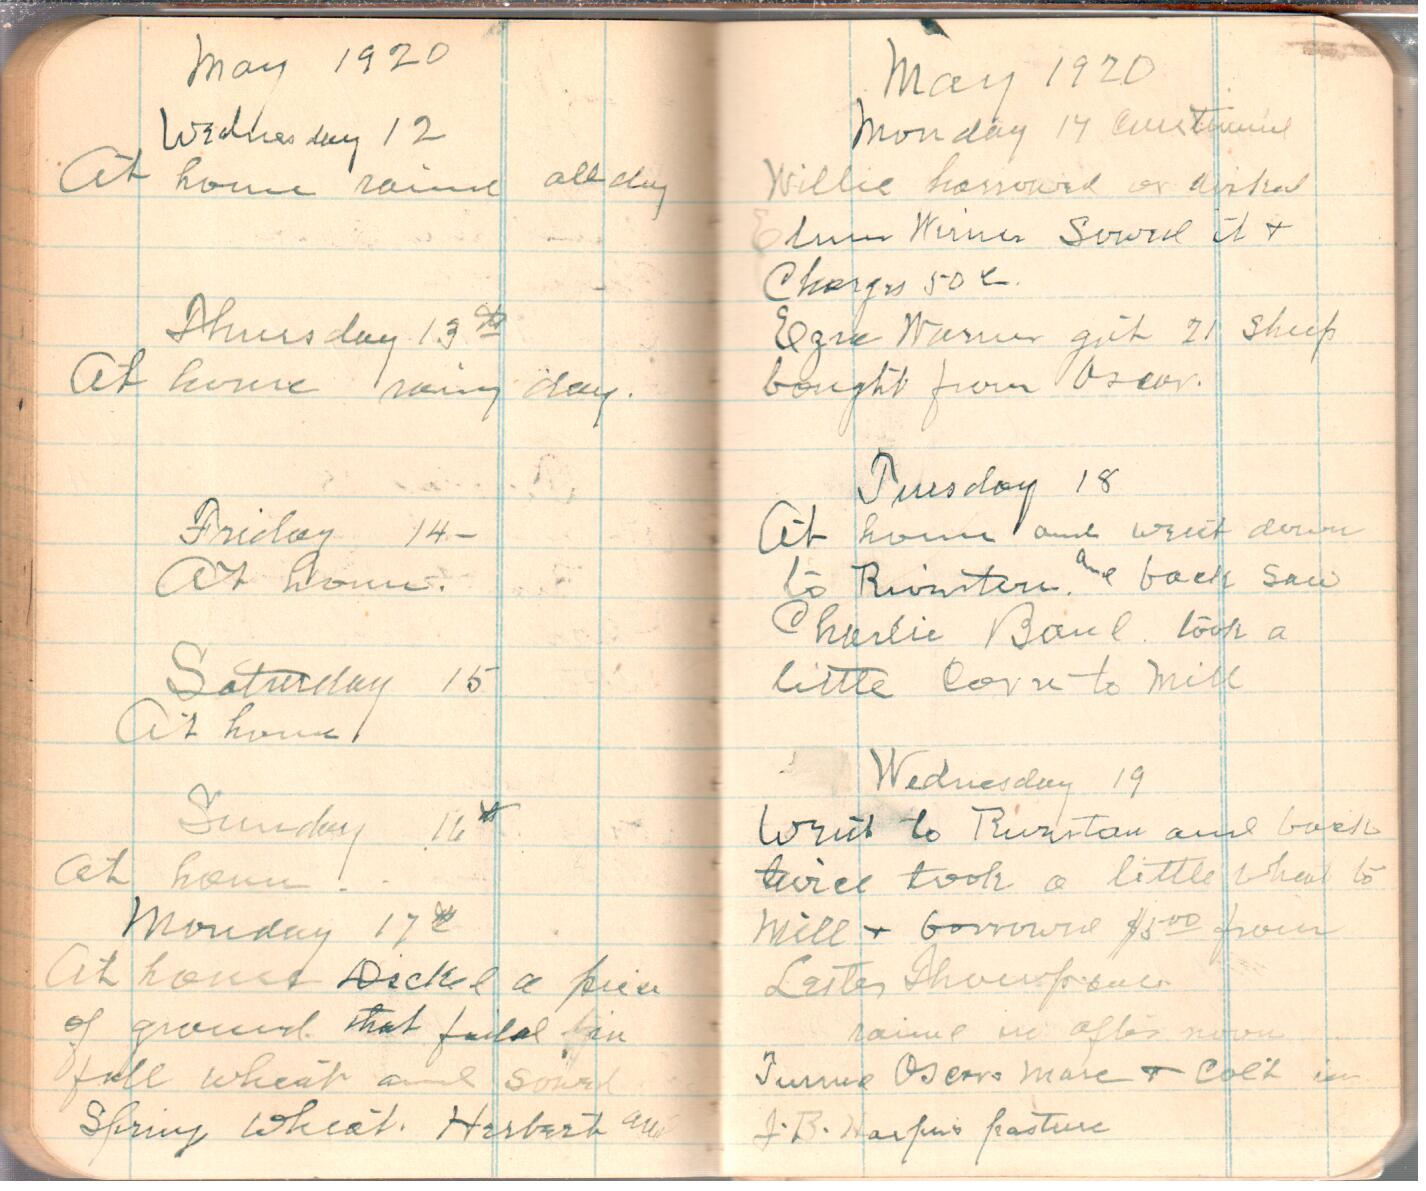 May 1920
Wednesday 12
At home rained all day
Thursday 13th
At home rainy day.
Friday 14-
At home.
Saturday 15
At home
Sunday 16th
At home.
Monday 17th
At home Disked a piece
of ground that failed in
fall wheat and sowed
Spring wheat. Herbert and
May 1920
Monday 17 continued
Willie harrowed or disked
Elmer Warner Sowed it +
Charges 50 c.
Ezra Warner got 21 sheep
bought from Oscar.
Tuesday 18
At home and went down
to and back saw
Charlie took a
little Corn to Mill
Wednesday 19
Went to and back
twice took a little wheat to
Mill + borrowed $5.00 from
Lester Thompson
rained in after noon
Turned Oscars mare + Colt in
J. B. pasture